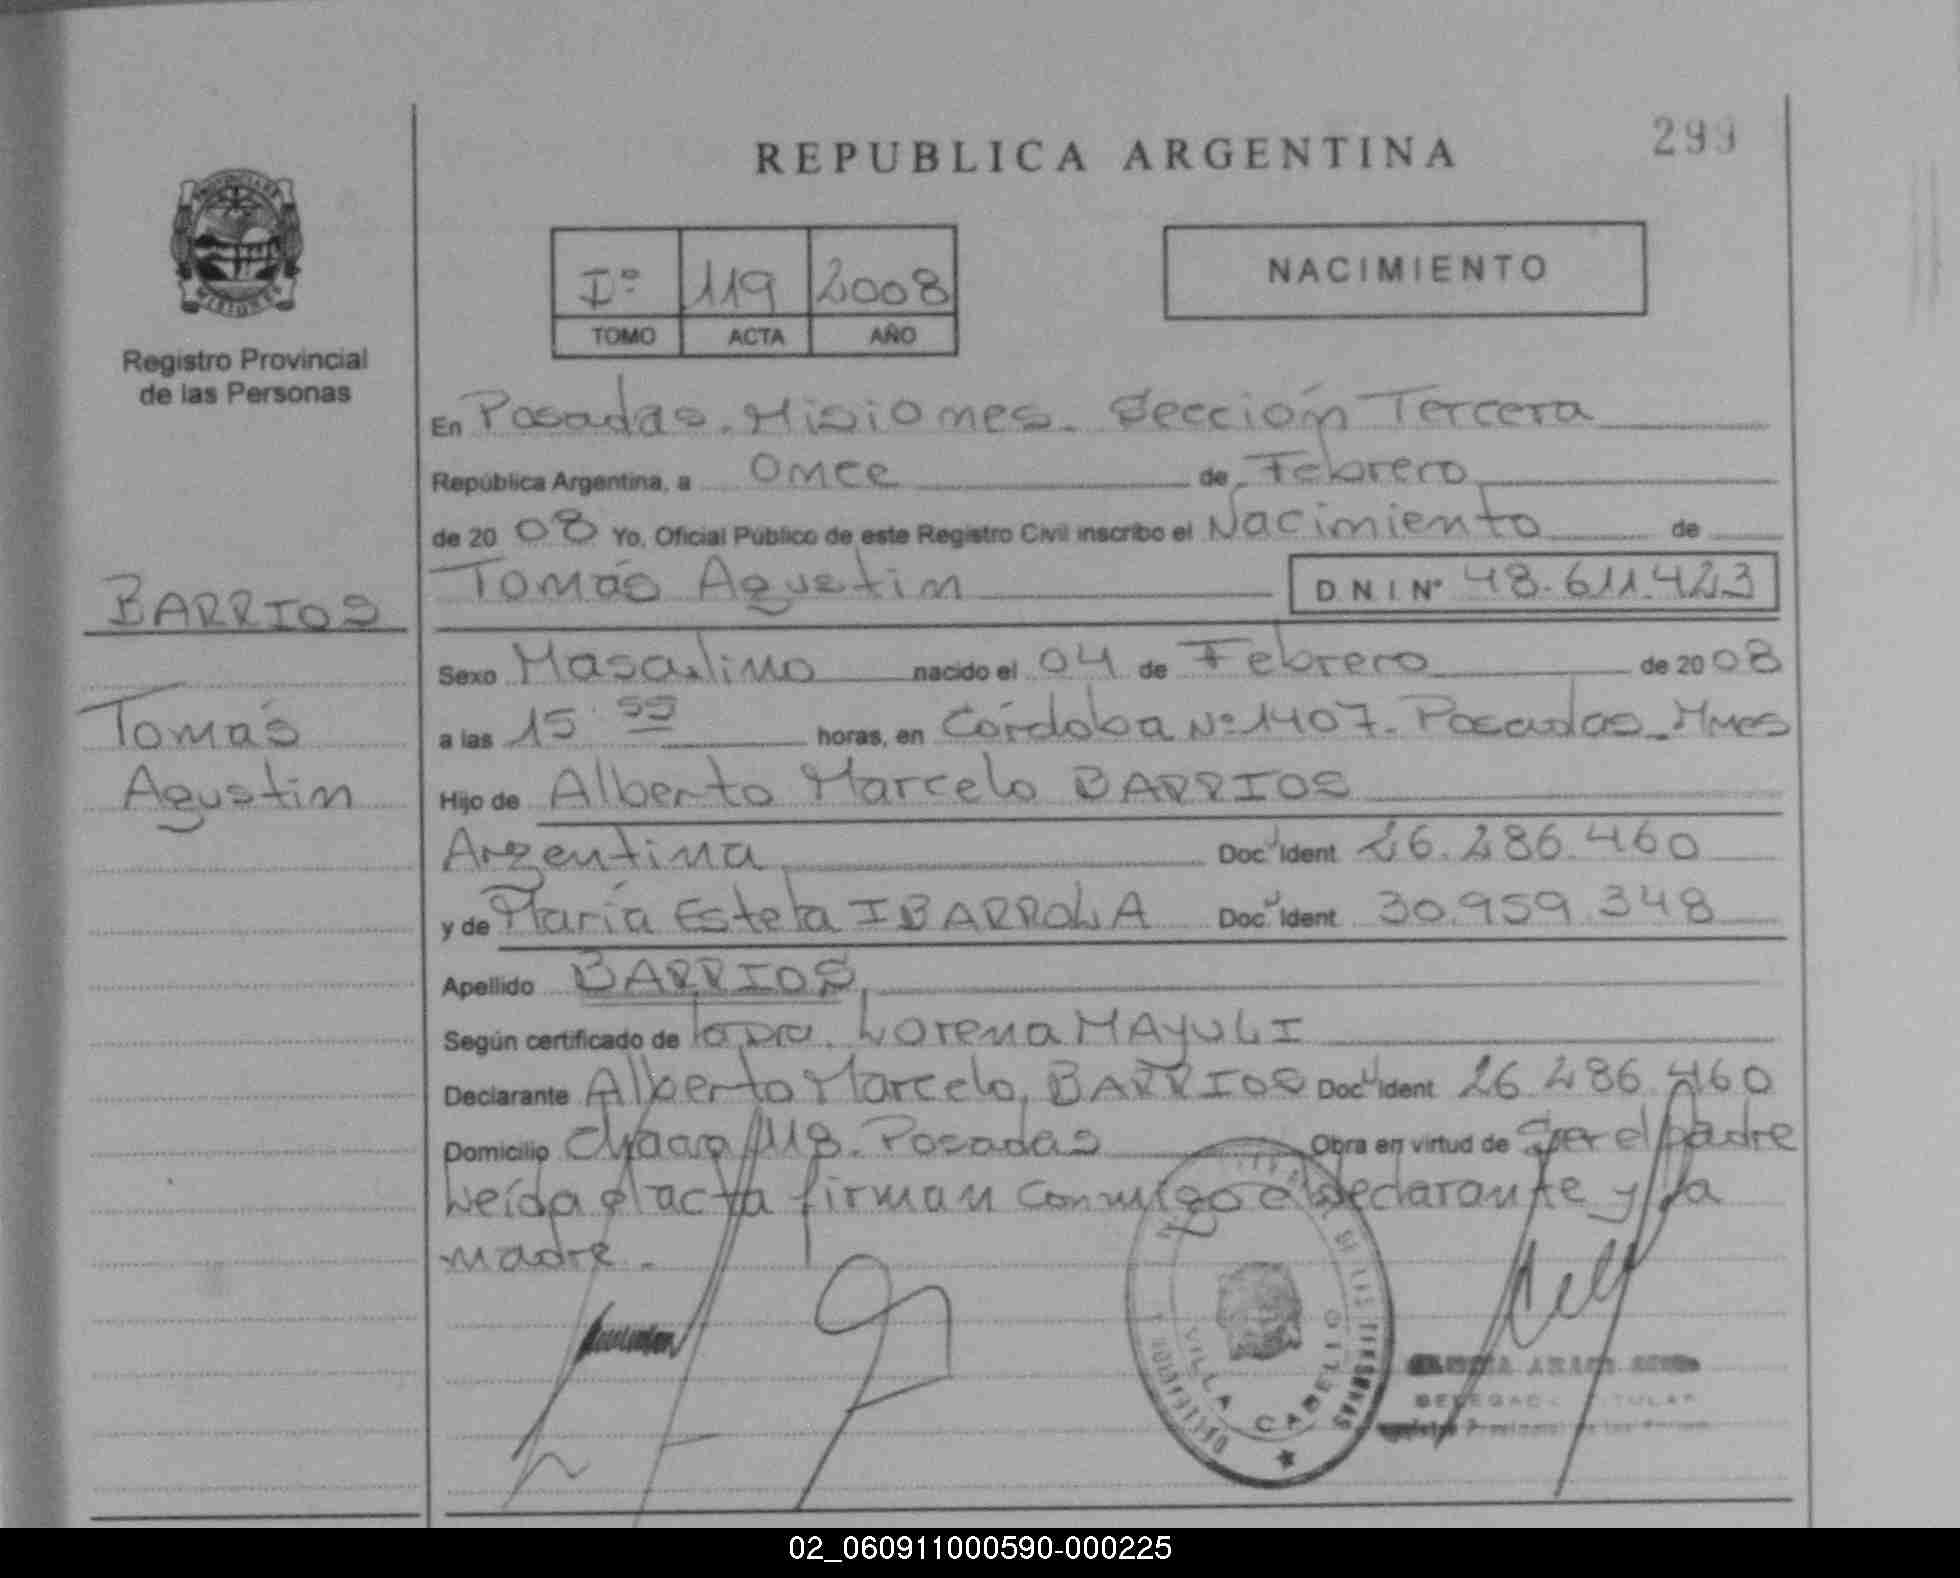 299
REPUBLICA ARGENTINA
PROVINCIA DE
MISIONES
Registro Provincial
de las Personas
Iº 119 2008
TOMO ACTA AÑO
NACIMIENTO
En Posadas. Misiones. Sección Tercera
República Argentina, a Once de Febrero
de 2008 Yo, Oficial Público de este Registro Civil inscribo el Nacimiento de
Tomás Agustin D N I Nº 48.611.423
BARRIOS
Tomás
Agustin
Sexo Masculino nacido el 04 de Febrero de 2008
a las 15 55 horas, en Córdoba Nº 1407. Posadas_Mnes
Hijo de Alberto Marcelo BARRIOS
Argentina Doc Ident 26.286.460
y de María Estela IBARROLA Doc Ident 30.959.348
Apellido BARRIOS
Según certificado de la Dra. Lorena MAYULI
Declarante Alberto Marcelo BARRIOS Doc Ident 26.286.460
Domicilio 118. Posadas Obra en virtud de Ser el padre
Leída el acta firman conmigo el declarante y la
madre.
DE LAS PERSONAS
VILLA CABELLO
02_060911000590-000225